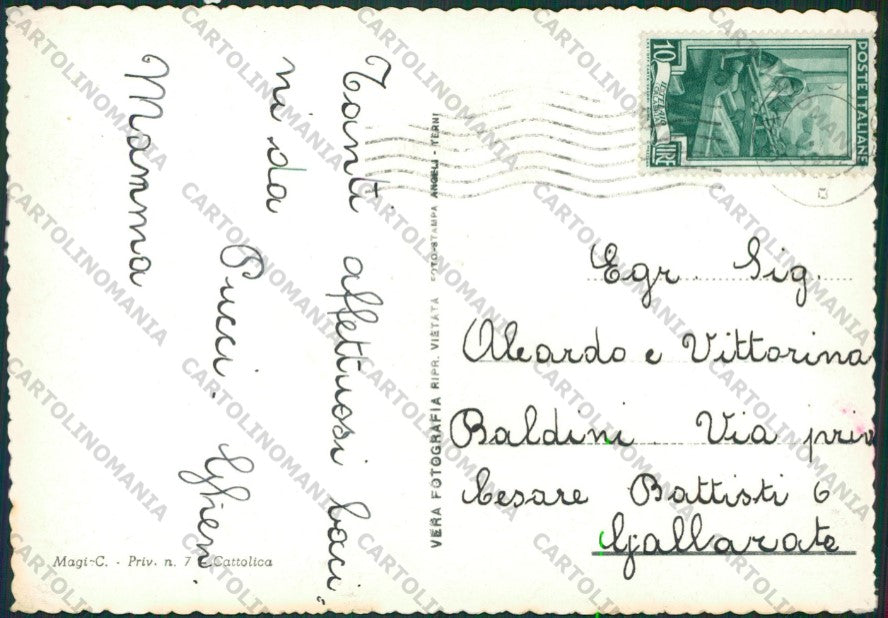 Tanti affettuosi baci
ni da
Pucci. Ghien.
Mamma
Magi-C. - Priv. n. 7 - Cattolica
VERA FOTOGRAFIA RIPR. VIETATA FOTO-STAMPA ANGELI - TERNI
10
LIRE
POSTE ITALIANE
Egr. Sig.
Aleardo e Vittorina
Baldini Via priv
Cesare Battisti 6
Gallarate
CARTOLINOMANIA